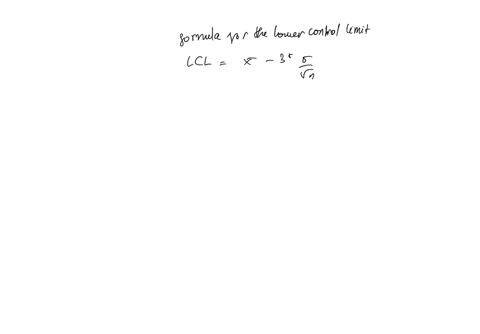 formula for the lower control limit
LCL = x̄ - 3* σ/√n